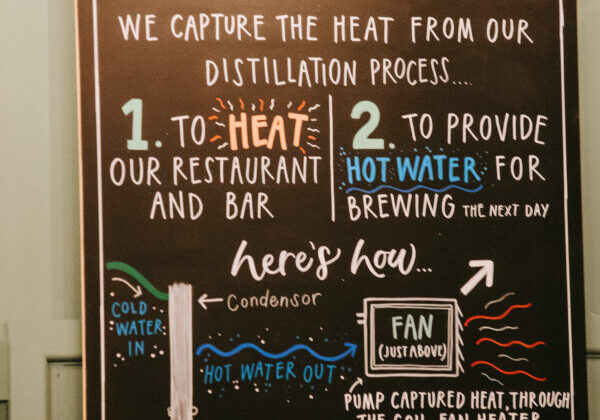 WE CAPTURE THE HEAT FROM OUR
DISTILLATION PROCESS....
1. TO HEAT
OUR RESTAURANT
AND BAR
2. TO PROVIDE
HOT WATER FOR
BREWING THE NEXT DAY
here's how...
COLD
WATER
IN
Condensor
HOT WATER OUT
FAN
(JUST ABOVE)
PUMP CAPTURED HEAT, THROUGH
THE COIL FAN HEATER